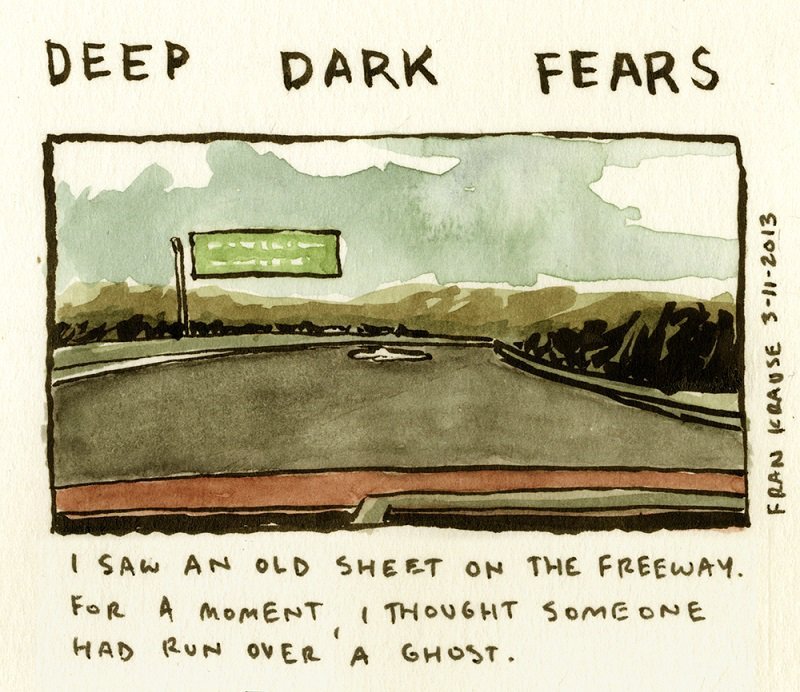 DEEP DARK FEARS
I SAW AN OLD SHEET ON THE FREEWAY.
FOR A MOMENT, I THOUGHT SOMEONE
HAD RUN OVER A GHOST.
FRAN KRAUSE 3-11-2013